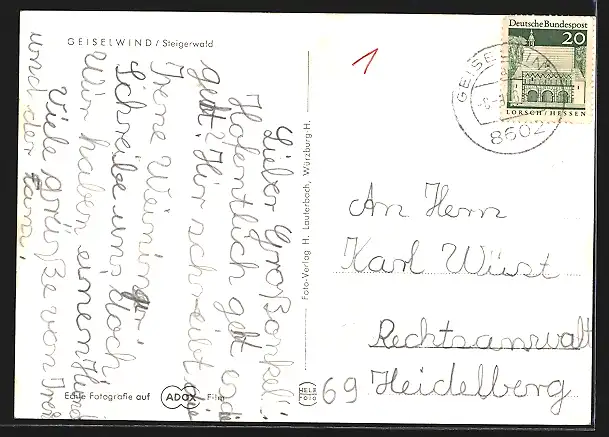 GEISELWIND / Steigerwald
Lieber Großonkel!
Hofentlich geht es dir
gut? Hir schreibt die
Irene Weininger.
Schreibe uns doch
Wir haben einen Hund
Viele grüße von Irene
und der Fam.!
Foto-Verlag H. Lauterbach, Würzburg-H.
Echte Fotografie auf ADOX Film
1
Deutsche Bundespost
20
LORSCH/HESSEN
8602
An Herrn
Karl Wüst
Rechtsanwalt
69 Heidelberg